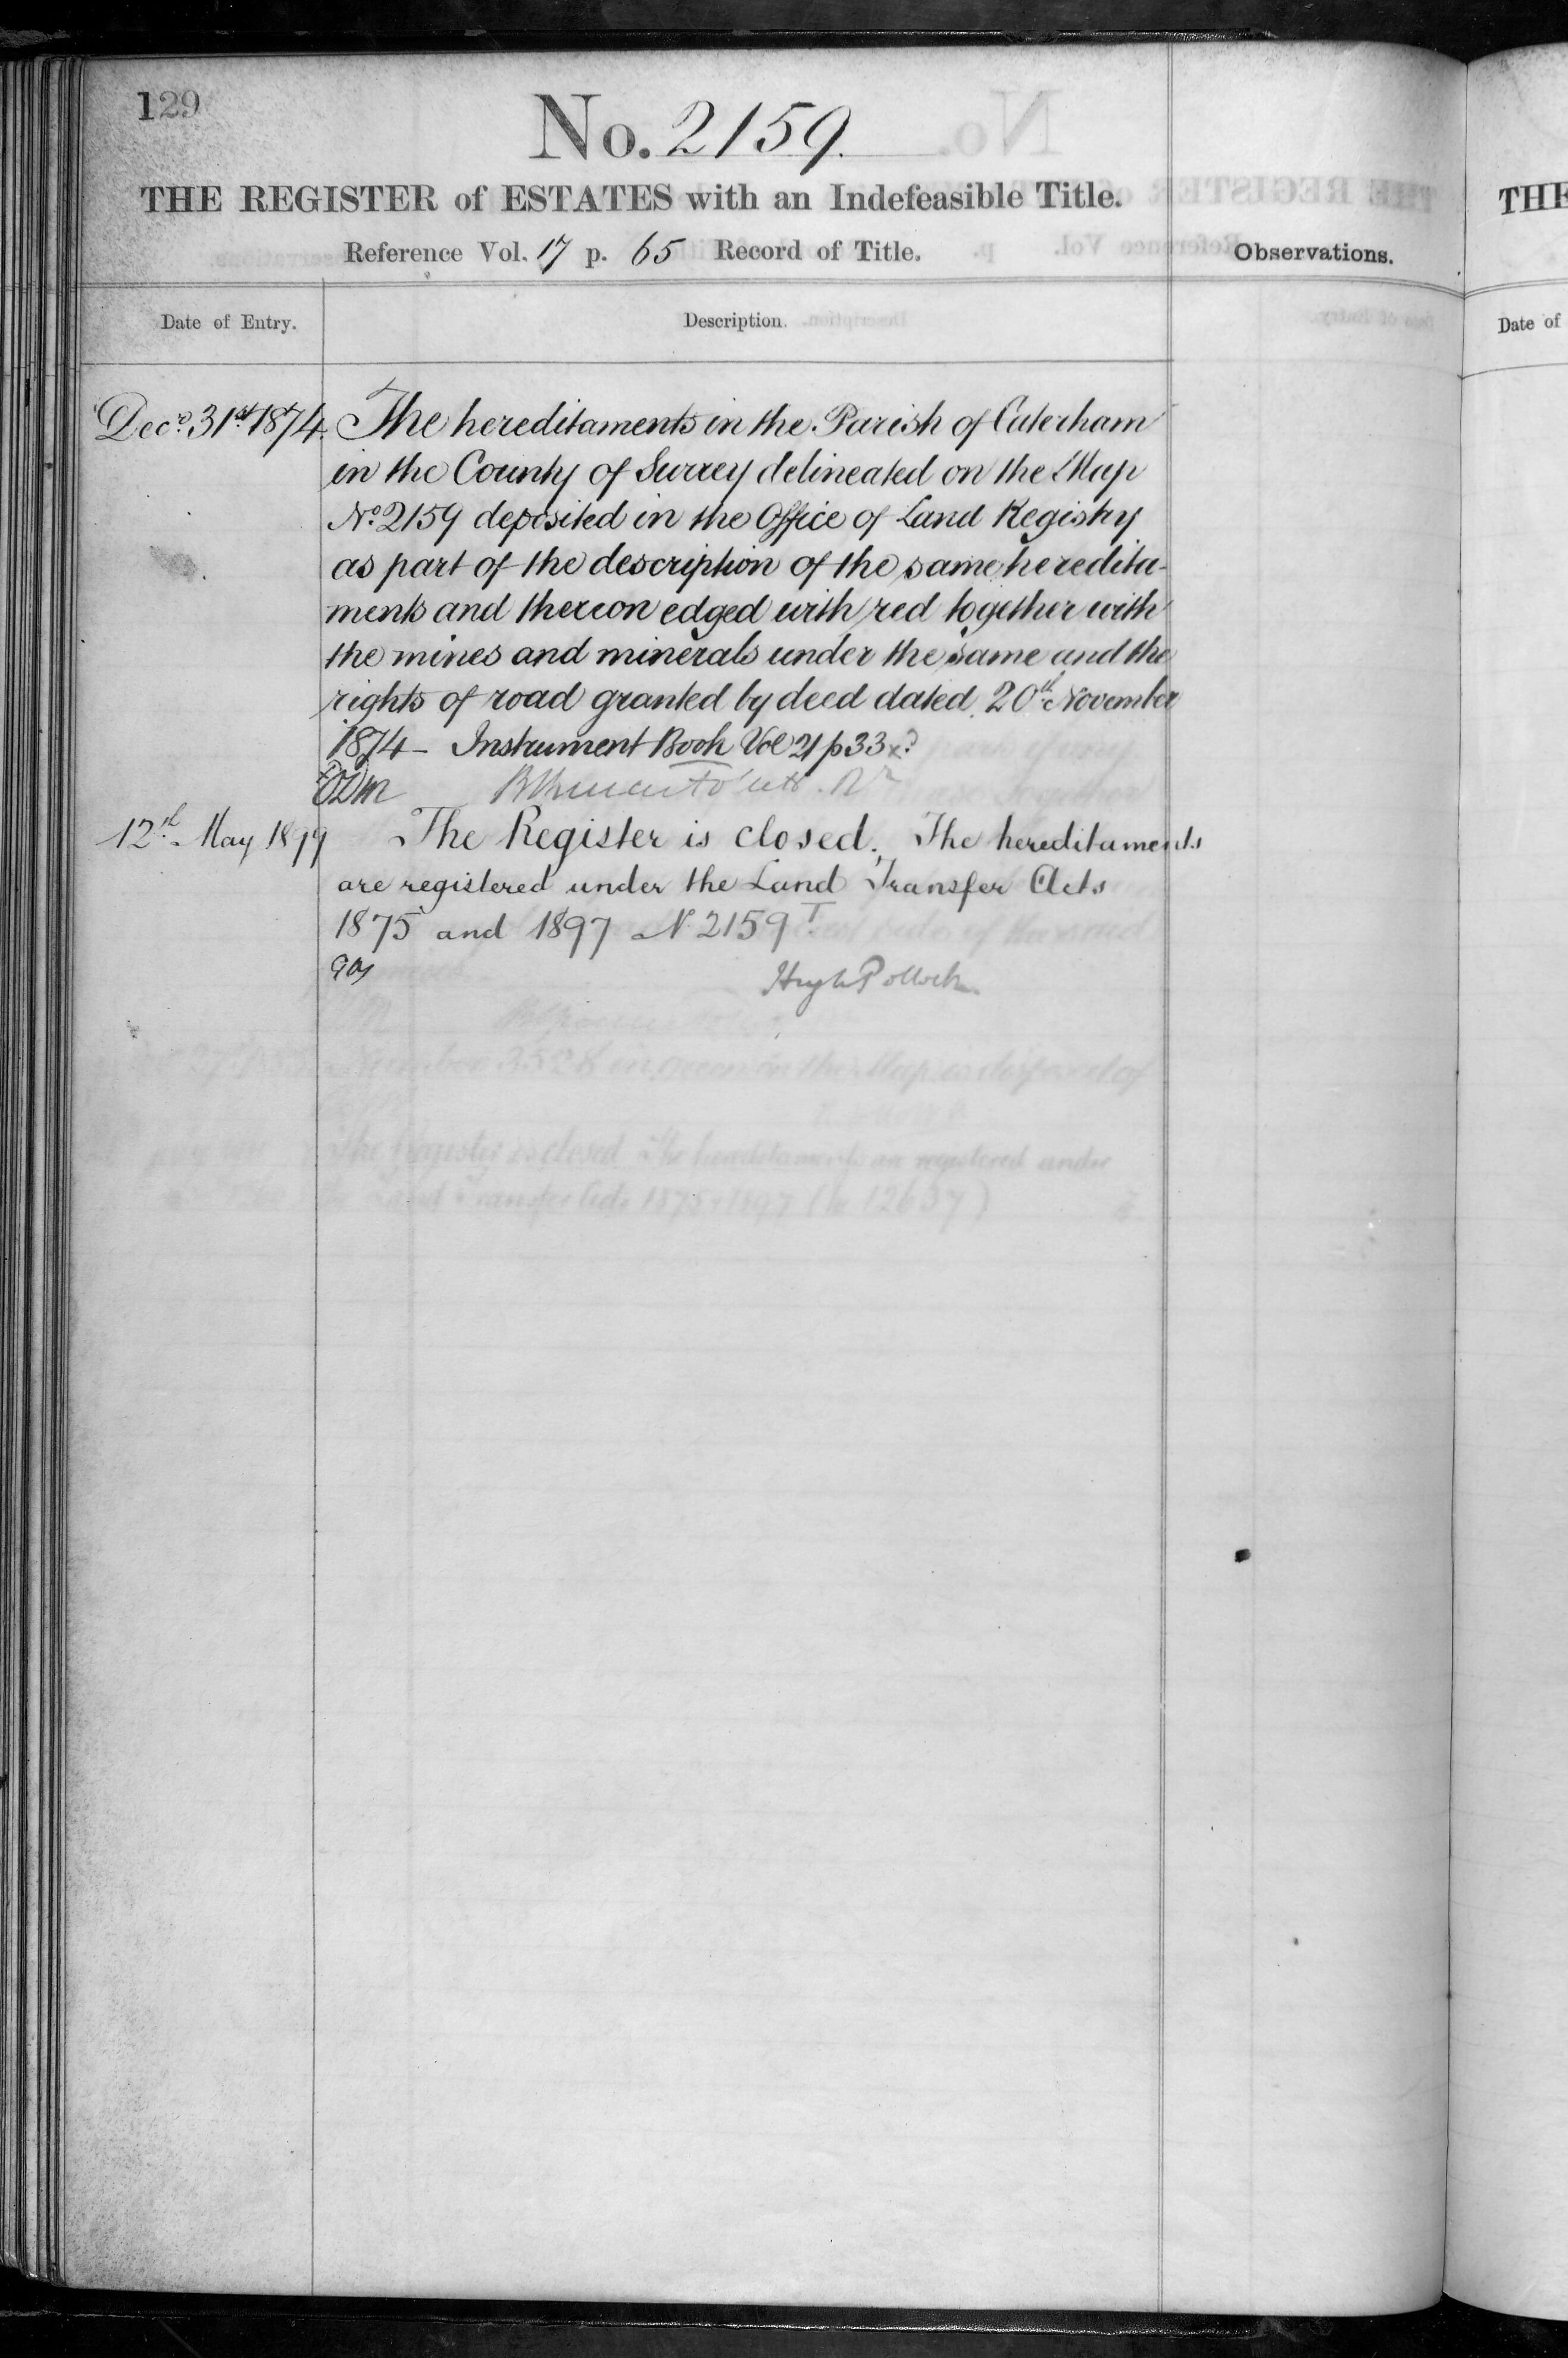 129
No. 2159.
THE REGISTER of ESTATES with an Indefeasible Title.
Reference Vol. 17 p. 65 Record of Title.
Observations.
Date of Entry.
Description.
Decr. 31st 1874. The hereditaments in the Parish of Caterham
in the County of Surrey delineated on the Map
No. 2159 deposited in the Office of Land Registry
as part of the description of the same heredita-
ments and thereon edged with red together with
the mines and minerals under the same and the
rights of road granted by deed dated 20th November
1874 - Instrument Book Vol 21 p 33
12th May 1899 The Register is closed. The hereditaments
are registered under the Land Transfer Acts
1875 and 1897 N. 2159 T
Hugh Pollock
THE
Date of